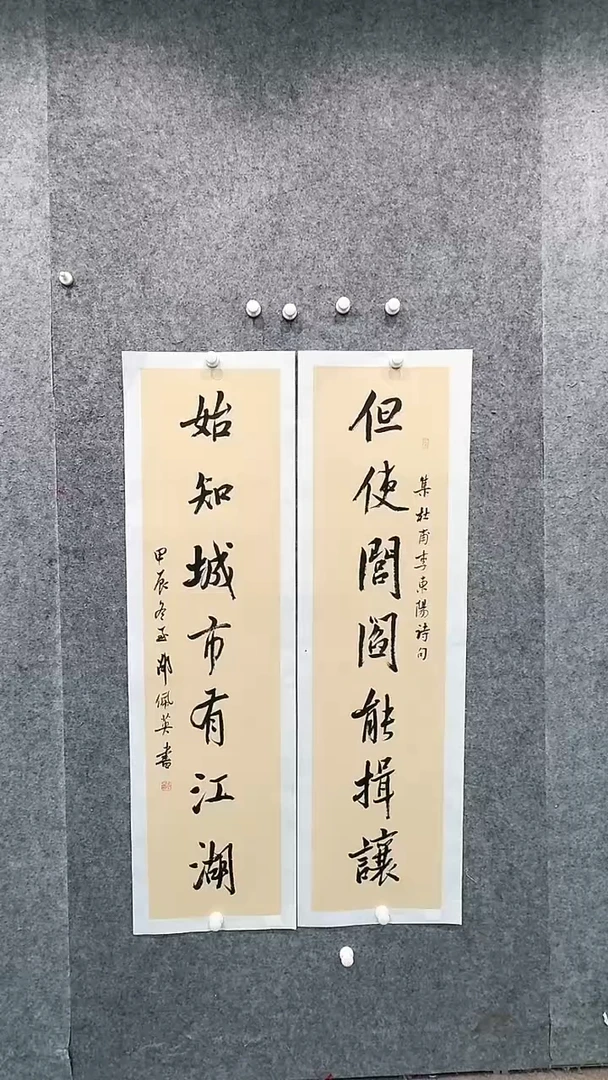 集杜甫李東陽詩句
但使閭閻能揖讓
始知城市有江湖
甲辰冬至佩英書